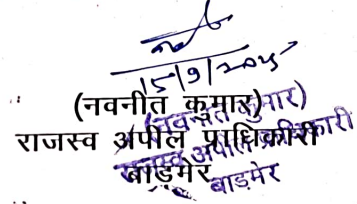 15/9/2025
(नवनीत कुमार)
राजस्व अपील प्राधिकारी
बाड़मेर
(नवनीत कुमार)
राजस्व अपील प्राधिकारी
बाड़मेर